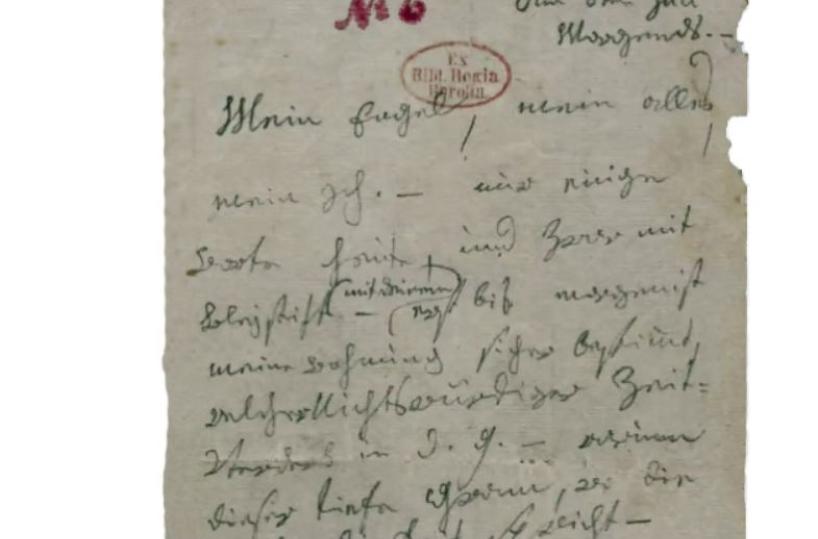 Juli
Morgends. –
Ex
Bibl. Regia
Berolin.
Mein Engel, mein alles,
mein Ich. – nur einige
Worte heute, und zwar mit
Bleystift – (mit deinem)
erst bis morgen ist
meine Wohnung sicher bestimmt,
welcher Nichtswürdiger Zeit=
Verderb in d. g. – warum
dieser tiefe Gram, wo die
spricht –